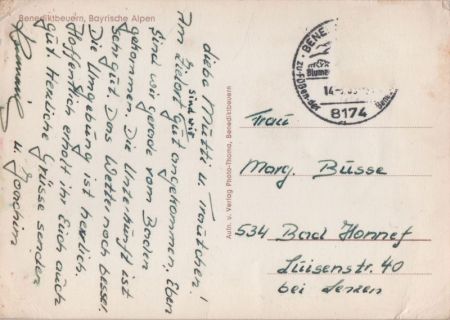 Benediktbeuern, Bayrische Alpen
Liebe Mutti u. Trautchen!
sind wir
Am Zielort gut angekommen. Eben
sind wir gerade vom Baden
gekommen. Die Unterkunft ist
sehr gut. Das Wetter noch besser.
Die Umgebung ist herrlich.
Hoffentlich erholt ihr Euch auch
gut. Herzliche Grüsse senden
u. Joachim
Aufn. u. Verlag Photo-Thoma, Benediktbeuern
BENE
Blume
zu Füßen der
8174
Frau
Marg. Büsse
534 Bad Honnef
Luisenstr. 40
bei